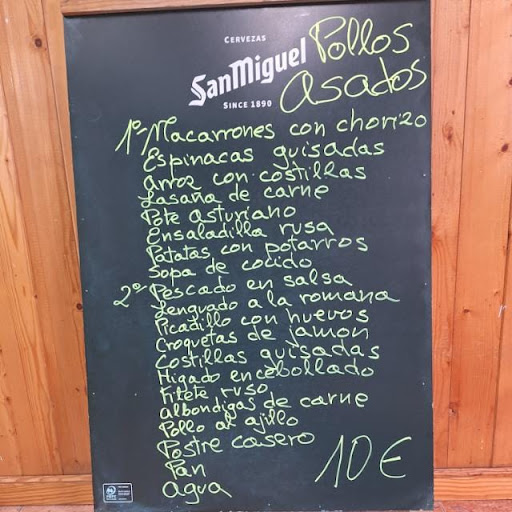 CERVEZAS
SanMiguel
SINCE 1890
Pollos
asados
1º Macarrones con chorizo
Espinacas guisadas
arroz con costillas
Lasaña de carne
Pote asturiano
Ensaladilla rusa
Patatas con potarros
Sopa de cocido
2º Pescado en salsa
Lenguado a la romana
Picadillo con huevos
Croquetas de jamon
Costillas guisadas
Higado encebollado
Filete ruso
albondigas de carne
Pollo al ajillo
Postre casero
Pan
agua
10 €